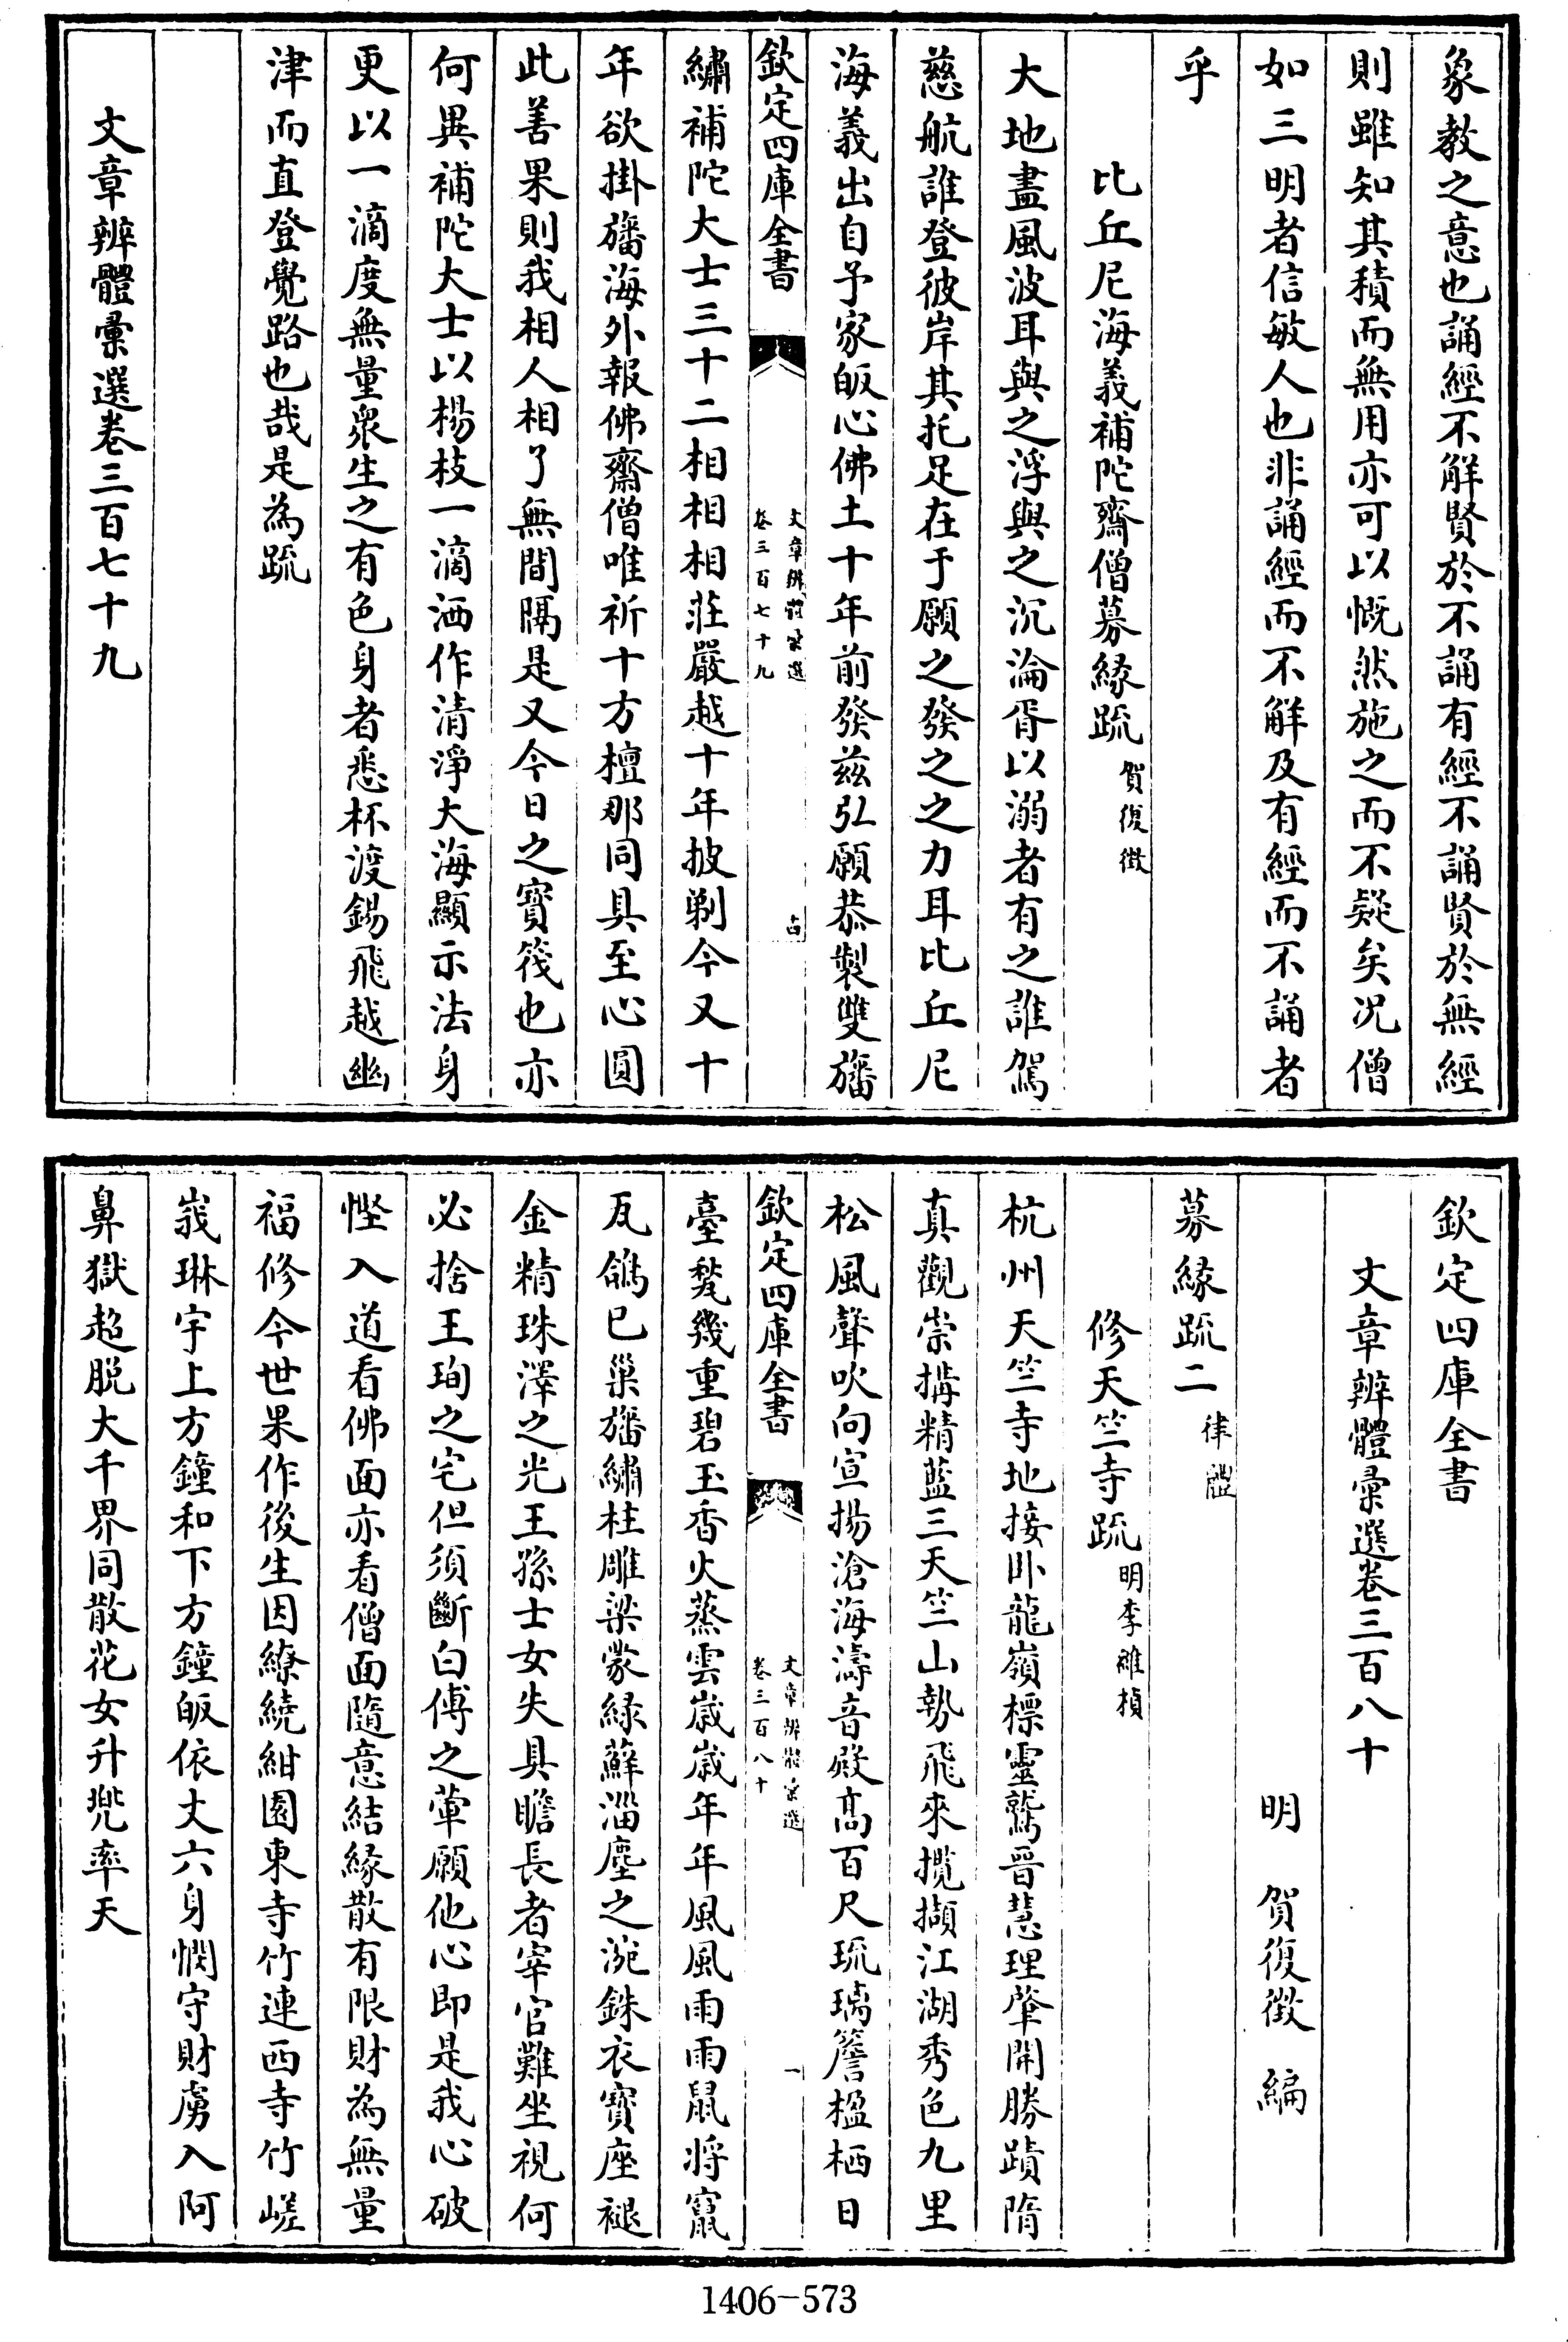 象教之意也誦經不解賢於不誦有經不誦賢於無經
則雖知其積而無用亦可以慨然施之而不疑矣况僧
如三明者信敏人也非誦經而不解及有經而不誦者
乎
比丘尼海義補陀齋僧募緣疏 賀復徴
大地盡風波耳與之浮與之沉淪胥以溺者有之誰駕
慈航誰登彼岸其托足在于願之發之之力耳比丘尼
海義出自予家皈心佛土十年前發兹弘願恭製雙旛
欽定四庫全書
文章辨體彙選
卷三百七十九
十四
繡補陀大士三十二相相相莊嚴越十年披剃今又十
年欲掛旛海外報佛齋僧唯祈十方檀那同具至心圓
此善果則我相人相了無間隔是又今日之寶筏也亦
何異補陀大士以楊枝一滴洒作清淨大海顯示法身
更以一滴度無量衆生之有色身者悉杯渡錫飛越幽
津而直登覺路也哉是為疏
文章辨體彙選卷三百七十九
欽定四庫全書
文章辨體彙選卷三百八十
明 賀復徴 編
募緣疏二 律體
修天竺寺疏 明李維楨
杭州天竺寺地接卧龍嶺標靈鷲晉慧理肇開勝蹟隋
真觀崇搆精藍三天竺山勢飛來攬擷江湖秀色九里
松風聲吹向宣揚滄海濤音殿髙百尺琉璃簷楹栖日
欽定四庫全書
文章辨體彙選
卷三百八十
一
臺甃幾重碧玉香火蒸雲歲歲年年風風雨雨鼠將竄
瓦鴿已巢旛繡柱雕梁蒙緑蘚淄塵之涴銖衣寶座褪
金精珠澤之光王孫士女失具瞻長者宰官難坐視何
必捨王珣之宅但須斷白傅之葷願他心即是我心破
慳入道看佛面亦看僧面隨意結緣散有限財為無量
福修今世果作後生因繚繞紺園東寺竹連西寺竹嵯
峩琳宇上方鐘和下方鐘皈依丈六身憫守財虜入阿
鼻獄超脱大千界同散花女升兜率天
1406-573